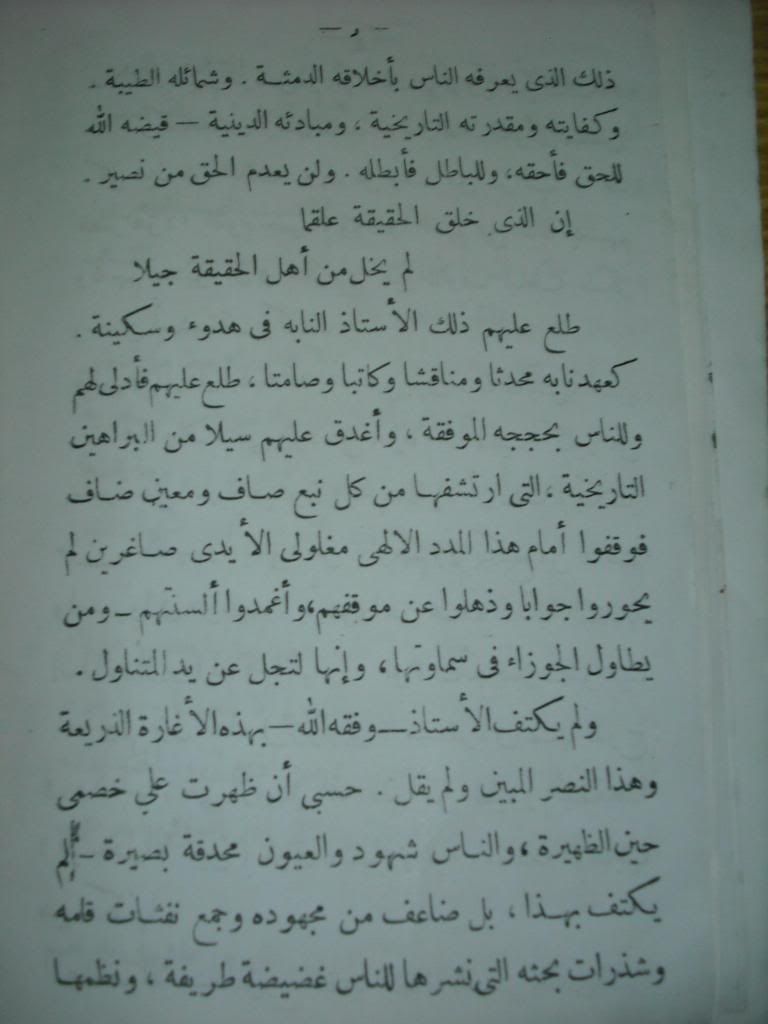 — ر —
ذلك الذى يعرفه الناس بأخلاقه الدمثة . وشمائله الطيبة .
وكفايته ومقدرته التاريخية ، ومبادئه الدينية — قيضه الله
للحق فأحقه، وللباطل فأبطله . ولن يعدم الحق من نصير .
إن الذى خلق الحقيقة علقما
لم يخل من أهل الحقيقة جيلا
طلع عليهم ذلك الأستاذ النابه فى هدوء وسكينة .
كعهدنا به محدثا ومناقشا وكاتبا وصامتا ، طلع عليهم فأدلى لهم
وللناس بحججه الموفقة ، وأغدق عليهم سيلا من البراهين
التاريخية ، التى ارتشفها من كل نبع صاف ومعين ضاف
فوقفوا أمام هذا المدد الالهى مغلولى الأيدى صاغرين لم
يحوروا جوابا وذهلوا عن موقفهم، وأغمدوا ألسنتهم — ومن
يطاول الجوزاء فى سماوتها ، وإنها لتجل عن يد المتناول .
ولم يكتف الأستاذ — وفقه الله — بهذه الأغارة الذريعة
وهذا النصر المبين ولم يقل . حسبى أن ظهرت علي خصمى
حين الظهيرة ، والناس شهود والعيون محدقة بصيرة - لم
يكتف بهذا ، بل ضاعف من مجهوده وجمع نفثات قلمه
وشذرات بحثه التى نشرها للناس غضيضة طريفة ، ونظمها